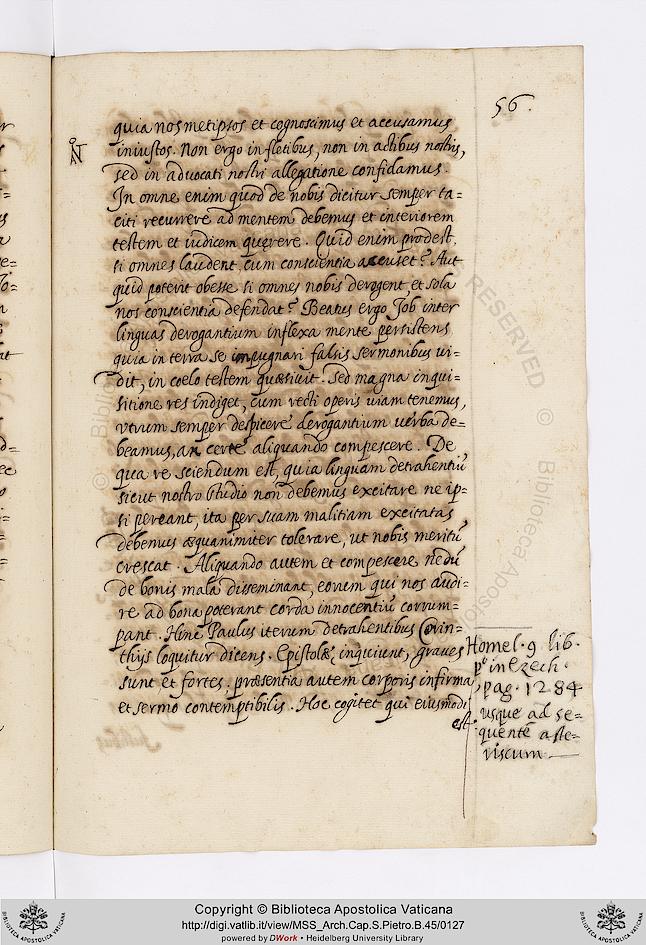 56.
quia nosmetipsos et cognoscimus et accusamus
iniustos. Non ergo in fletibus, non in actibus nostris,
sed in advocati nostri allegatione confidamus.
In omne enim quod de nobis dicitur semper ta=
citi recurrere ad mentem debemus et interiorem
testem et iudicem querere. Quid enim prodest,
si omnes laudent, cum conscientia accuset? Aut
quid poterit obesse si omnes nobis derogent, et sola
nos conscientia defendat? Beatus ergo Job inter
linguas derogantium inflexa mente persistens
quia in terra se impugnari falsis sermonibus vi=
dit, in coelo testem quæsivit. Sed magna inqui=
sitione res indiget, cum recti operis viam tenemus,
utrum semper despicere derogantium verba de=
beamus, an certe aliquando compescere. De
qua re sciendum est, quia linguam detrahentiũ
sicut nostro studio non debemus excitare ne ip=
si pereant, ita per suam malitiam excitatas
debemus æquanimiter tolerare, ut nobis meritũ
crescat. Aliquando autem et compescere nedũ
de bonis mala disseminant, eorum qui nos audi=
re ad bona poterant corda innocentiũ corrum=
pant. Hinc Paulus iterum detrahentibus Corin=
thijs loquitur dicens. Epistolæ, inquiunt, graves
sunt et fortes, præsentia autem corporis infirma
et sermo contemptibilis. Hoc cogitet qui eiusmodi
est
Homel. 9 lib.
p.º in Ezech.
pag. 1284
usque ad se=
quentẽ aste=
riscum.
RESERVED ©
© Biblioteca Apostolica
Copyright © Biblioteca Apostolica Vaticana
http://digi.vatlib.it/view/MSS_Arch.Cap.S.Pietro.B.45/0127
powered by DWork • Heidelberg University Library